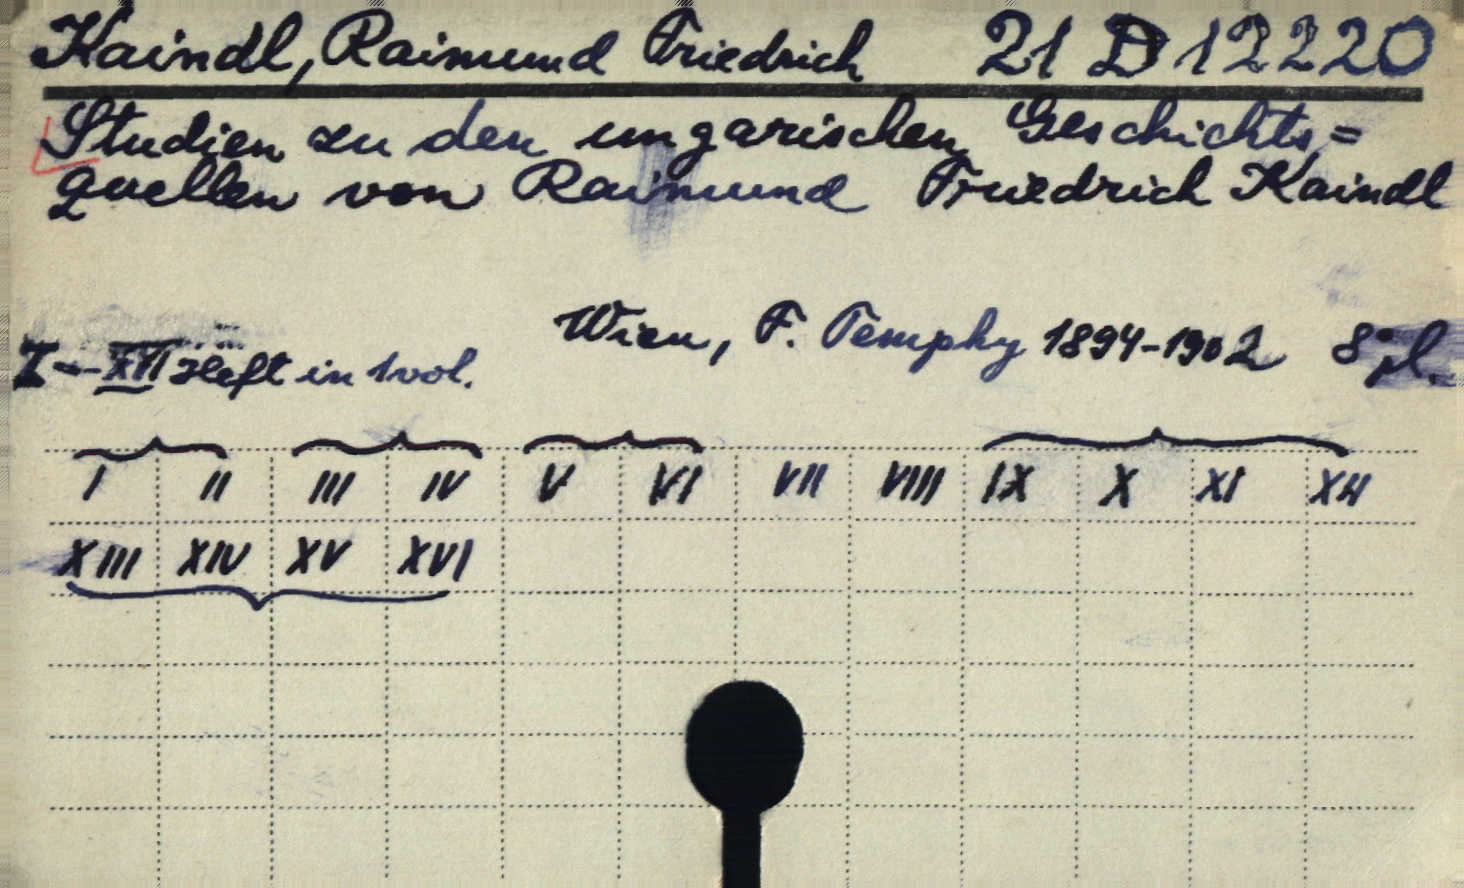 Kaindl, Raimund Friedrich 21 D 12220
Studien zu den ungarischen Geschichts=
quellen von Raimund Friedrich Kaindl
Wien, F. Tempsky 1894-1902 8°
I - XVI Heft in 1 vol.
I II III IV V VI VII VIII IX X XI XII
XIII XIV XV XVI